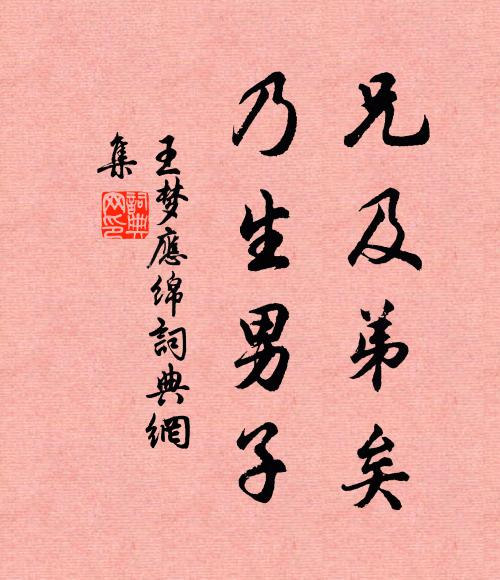 兄及弟矣
乃生男子
王梦應绵詞典網
集
詞典
网印